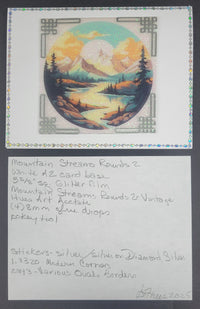 Mountain Streams Rounds 2
White A2 card base
3 5/8" sq. Glitter Film
Mountain Stream Rounds 2: Vintage
Hues Art Acetate
(4) 8mm glue drops
pokey tool
Stickers - silver/silver on Diamond Silver
1.3320 Modern Corners
Various Ovals Borders
2025